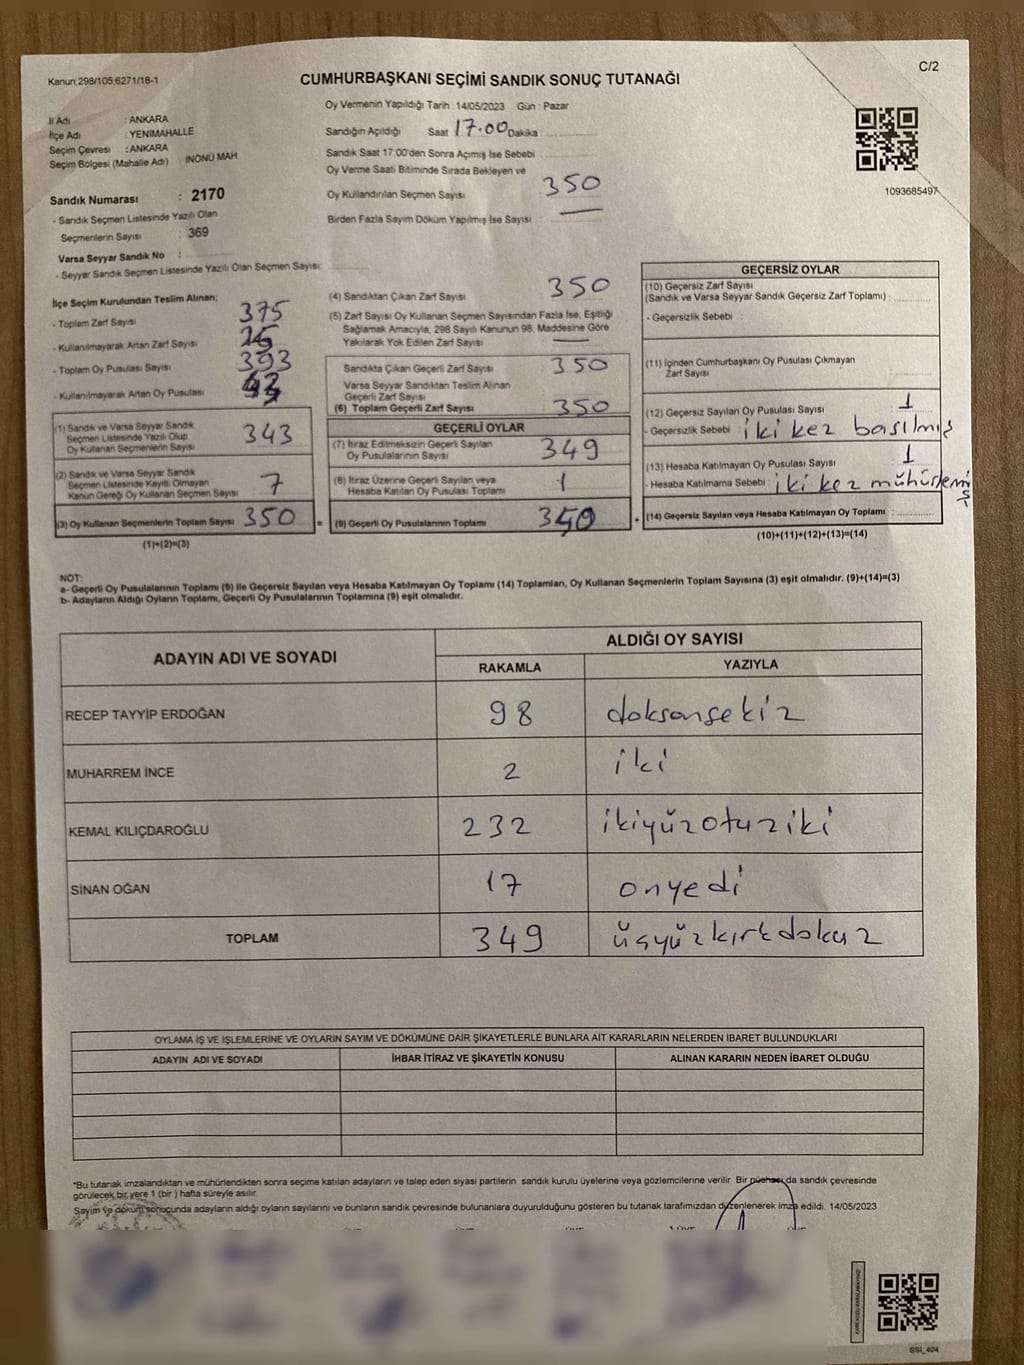 Kanun;298/105;6271/18-1
CUMHURBAŞKANI SEÇİMİ SANDIK SONUÇ TUTANAĞI
C/2
İl Adı : ANKARA
İlçe Adı : YENİMAHALLE
Seçim Çevresi : ANKARA
Seçim Bölgesi (Mahalle Adı) İNÖNÜ MAH.
Sandık Numarası : 2170
- Sandık Seçmen Listesinde Yazılı Olan
Seçmenlerin Sayısı : 369
Varsa Seyyar Sandık No :
- Seyyar Sandık Seçmen Listesinde Yazılı Olan Seçmen Sayısı:
Oy Vermenin Yapıldığı Tarih :14/05/2023 Gün : Pazar
Sandığın Açıldığı Saat 17.00 Dakika :
Sandık Saat 17:00'den Sonra Açımış İse Sebebi :
Oy Verme Saati Bitiminde Sırada Bekleyen ve
Oy Kullandırılan Seçmen Sayısı 350
Birden Fazla Sayım Döküm Yapılmış İse Sayısı : —
1093685497
İlçe Seçim Kurulundan Teslim Alınan;
- Toplam Zarf Sayısı 375
- Kullanılmayarak Artan Zarf Sayısı
- Toplam Oy Pusulası Sayısı 393
- Kullanılmayarak Artan Oy Pusulası 43
(1) Sandık ve Varsa Seyyar Sandık
Seçmen Listesinde Yazılı Olup
Oy Kullanan Seçmenlerin Sayısı 343
(2) Sandık ve Varsa Seyyar Sandık
Seçmen Listesinde Kayıtlı Olmayan
Kanun Gereği Oy Kullanan Seçmen Sayısı 7
(3) Oy Kullanan Seçmenlerin Toplam Sayısı 350 =
(1)+(2)=(3)
(4) Sandıktan Çıkan Zarf Sayısı 350
(5) Zarf Sayısı Oy Kullanan Seçmen Sayısından Fazla İse, Eşitliği
Sağlamak Amacıyla, 298 Sayılı Kanunun 98. Maddesine Göre
Yakılarak Yok Edilen Zarf Sayısı —
Sandıkta Çıkan Geçerli Zarf Sayısı 350
Varsa Seyyar Sandıktan Teslim Alınan
Geçerli Zarf Sayısı
(6) Toplam Geçerli Zarf Sayısı 350
GEÇERLİ OYLAR
(7) İtiraz Edilmeksizin Geçerli Sayılan
Oy Pusulalarının Sayısı 349
(8) İtiraz Üzerine Geçerli Sayılan veya
Hesaba Katılan Oy Pusulası Toplamı 1
(9) Geçerli Oy Pusulalarının Toplamı +
GEÇERSİZ OYLAR
(10) Geçersiz Zarf Sayısı
(Sandık ve Varsa Seyyar Sandık Geçersiz Zarf Toplamı) :
- Geçersizlik Sebebi :
(11) İçinden Cumhurbaşkanı Oy Pusulası Çıkmayan
Zarf Sayısı
(12) Geçersiz Sayılan Oy Pusulası Sayısı 1
- Geçersizlik Sebebi : iki kez basılmış
(13) Hesaba Katılmayan Oy Pusulası Sayısı 1
- Hesaba Katılmama Sebebi : iki kez mühürlemiş
(14) Geçersiz Sayılan veya Hesaba Katılmayan Oy Toplamı :
(10)+(11)+(12)+(13)=(14)
NOT:
a- Geçerli Oy Pusulalarının Toplamı (9) ile Geçersiz Sayılan veya Hesaba Katılmayan Oy Toplamı (14) Toplamları, Oy Kullanan Seçmenlerin Toplam Sayısına (3) eşit olmalıdır. (9)+(14)=(3)
b- Adayların Aldığı Oyların Toplamı, Geçerli Oy Pusulalarının Toplamına (9) eşit olmalıdır.
ADAYIN ADI VE SOYADI
ALDIĞI OY SAYISI
RAKAMLA YAZIYLA
RECEP TAYYİP ERDOĞAN 98 doksansekiz
MUHARREM İNCE 2 iki
KEMAL KILIÇDAROĞLU 232 ikiyüzotuziki
SİNAN OĞAN 17 onyedi
TOPLAM 349 üçyüzkırkdokuz
OYLAMA İŞ VE İŞLEMLERİNE VE OYLARIN SAYIM VE DÖKÜMÜNE DAİR ŞİKAYETLERLE BUNLARA AİT KARARLARIN NELERDEN İBARET BULUNDUKLARI
ADAYIN ADI VE SOYADI İHBAR İTİRAZ VE ŞİKAYETİN KONUSU ALINAN KARARIN NEDEN İBARET OLDUĞU
*Bu tutanak imzalandıktan ve mühürlendikten sonra seçime katılan adayların ve talep eden siyasi partilerin sandık kurulu üyelerine veya gözlemcilerine verilir. Bir nüshası da sandık çevresinde
görülecek bir yere 1 (bir) hafta süreyle asılır.
Sayım ve döküm sonucunda adayların aldığı oyların sayılarını ve bunların sandık çevresinde bulunanlara duyurulduğunu gösteren bu tutanak tarafımızdan düzenlenerek imza edildi. 14/05/2023
SSI_404